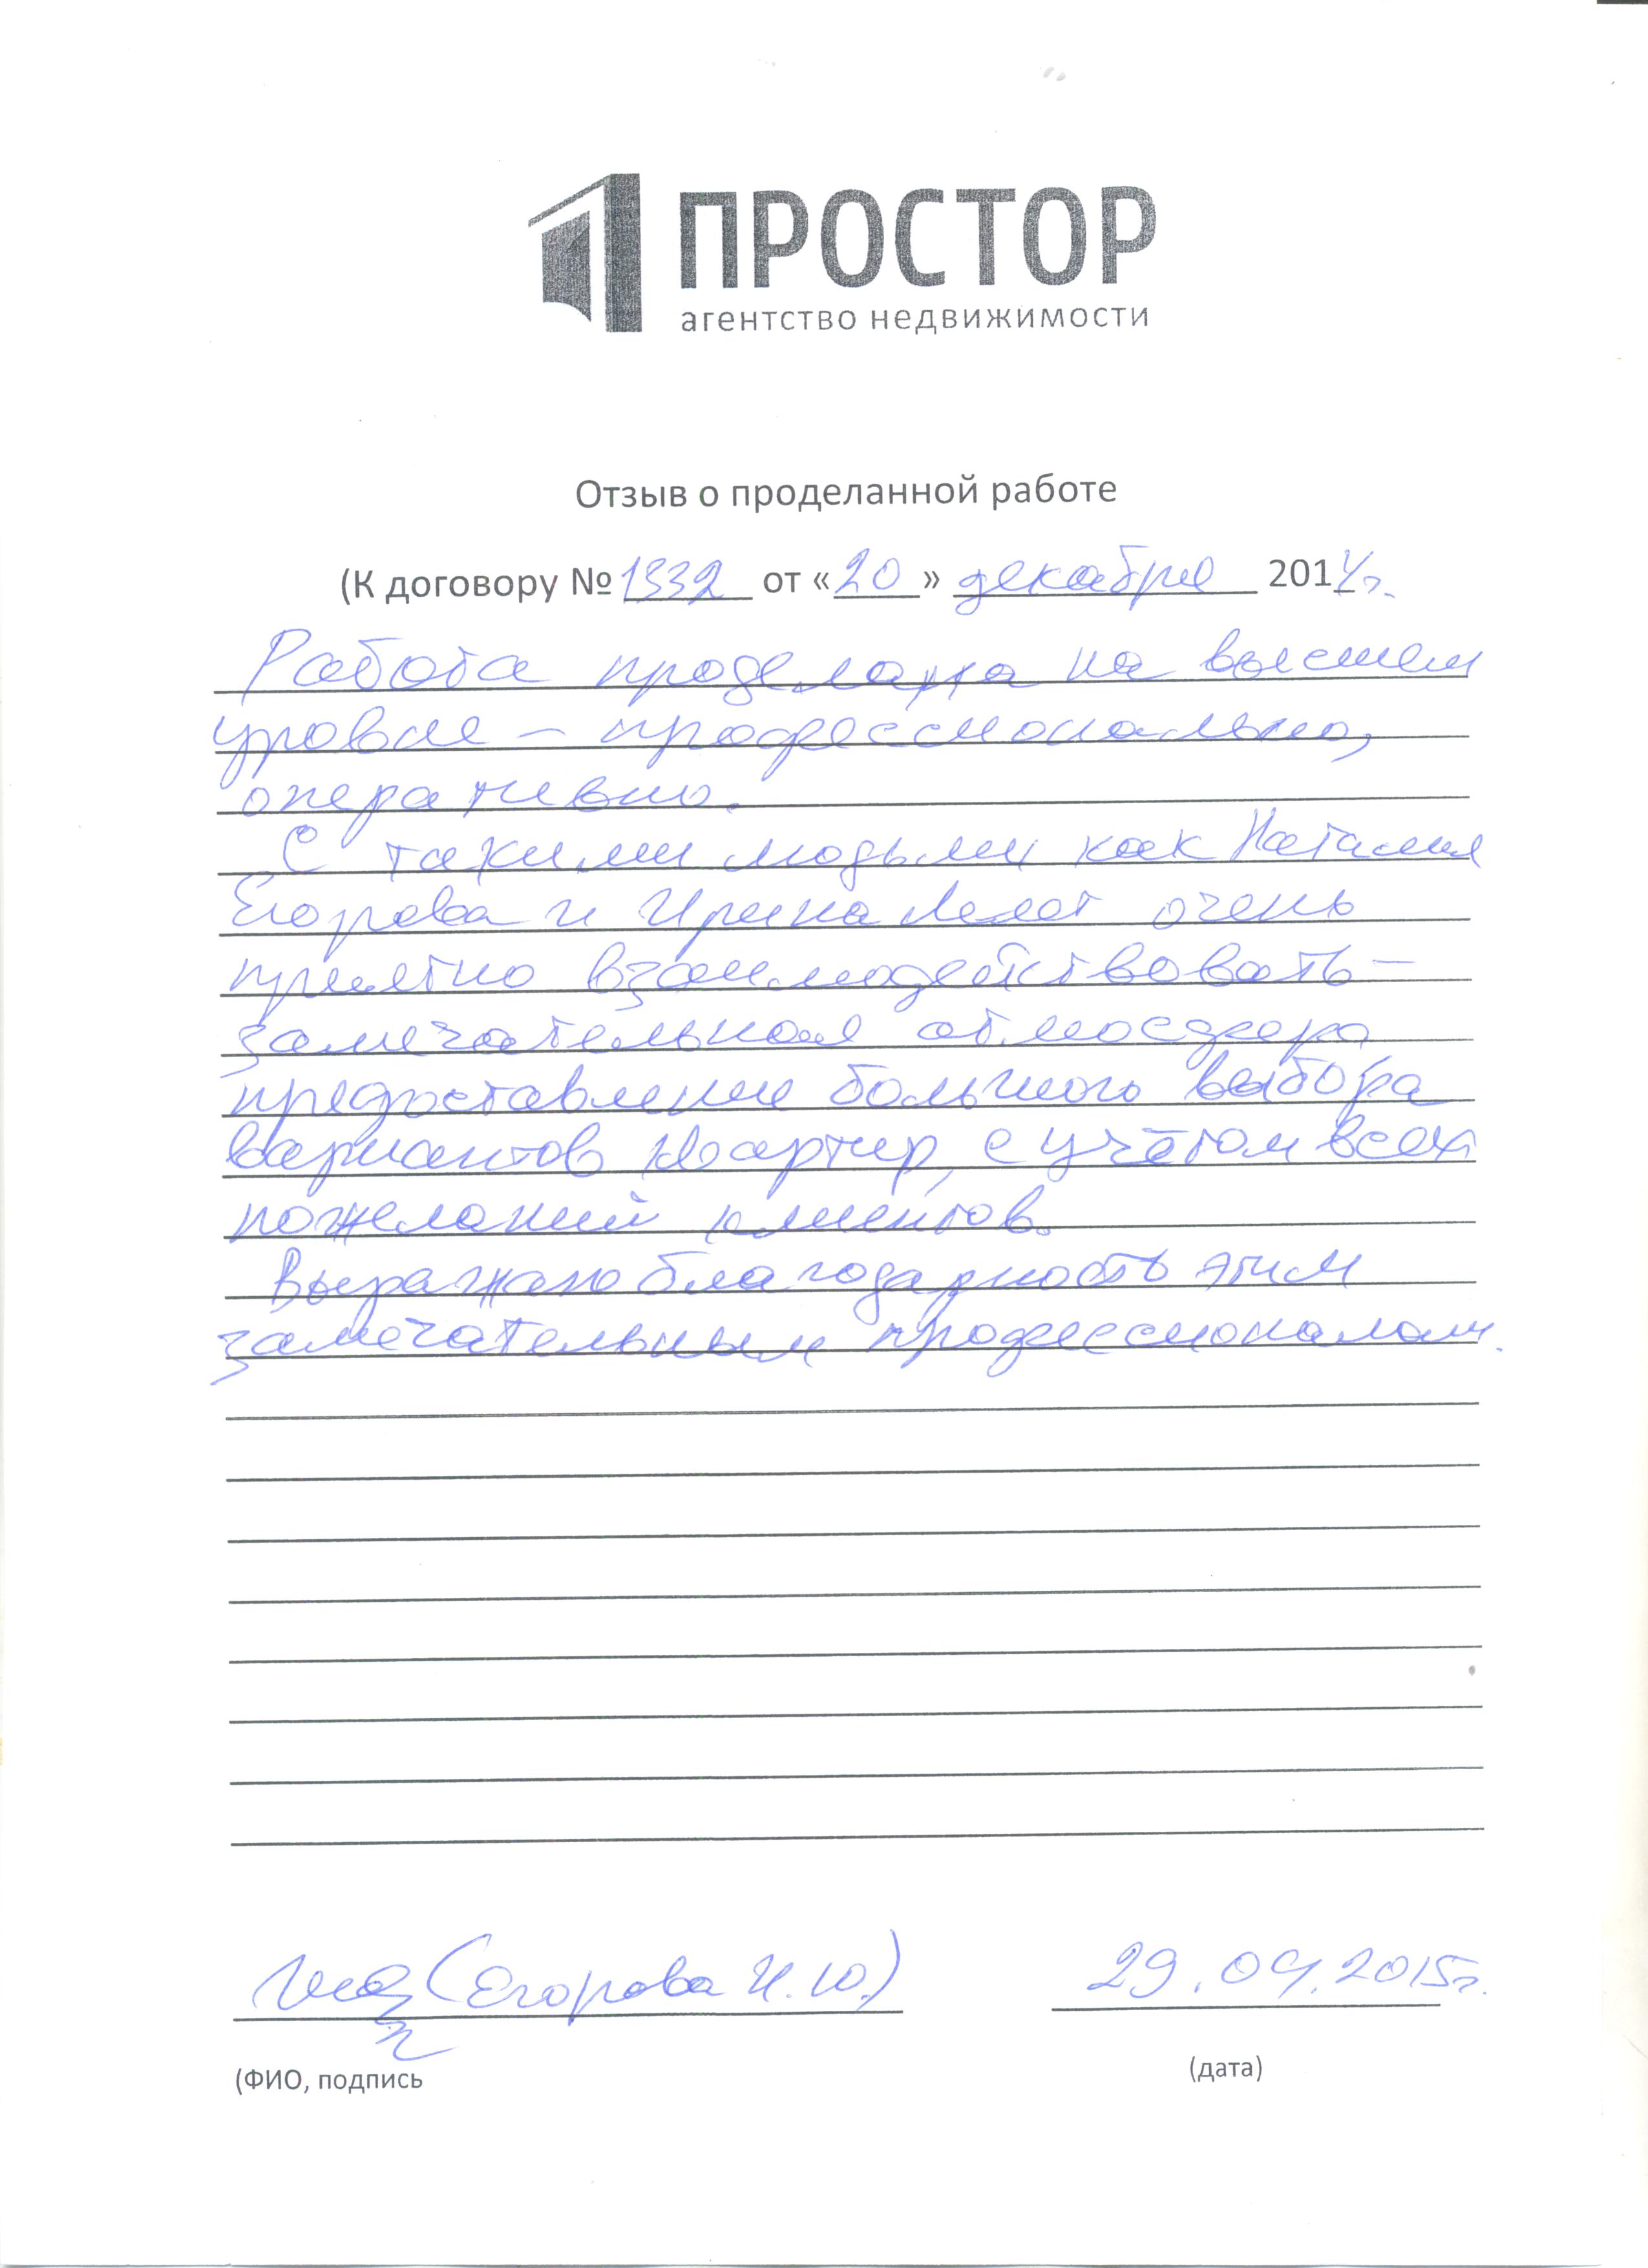 ПРОСТОР
агентство недвижимости
Отзыв о проделанной работе
(К договору № 1332 от «20» декабря 2014г.
Работа проделана на высшем
уровне – профессионально,
оперативно.
С такими людьми как Наталия
Егорова и Ирина очень
приятно взаимодействовать –
замечательная атмосфера
предоставление большого выбора
вариантов квартир, с учётом всех
пожеланий клиентов.
Выражаю благодарность этим
замечательным профессионалам.
(Егорова И.Ю.) 29.04.2015г.
(ФИО, подпись (дата)